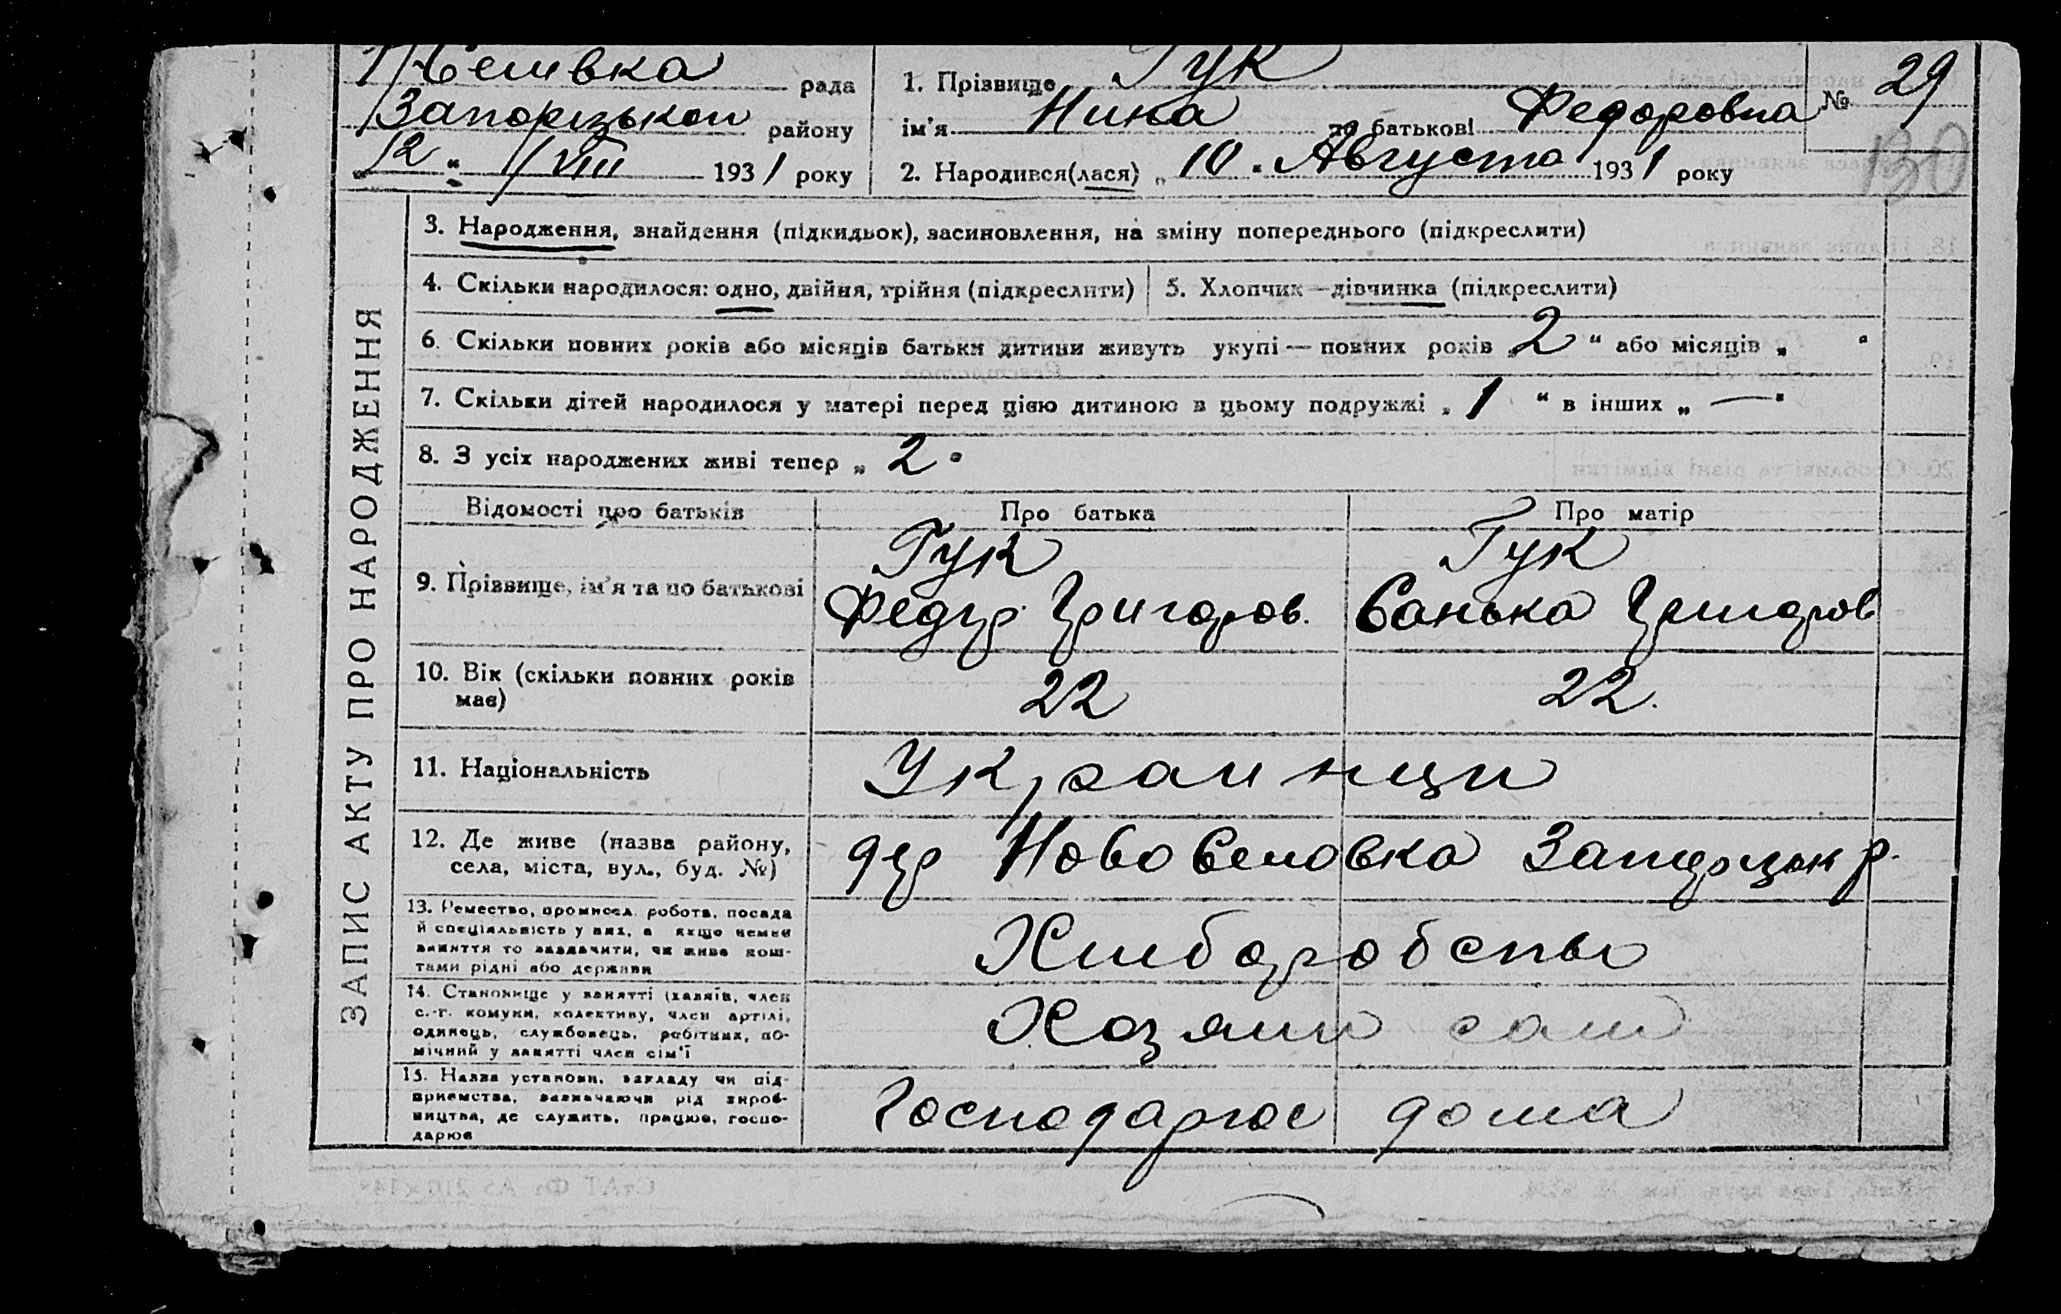 рада
Запорізькои району
„12“ VIII 1931 року
1. Прізвище Гук
ім'я Нина по батькові Федоровна
№ 29
130
2. Народився(лася) „10“ Августа 1931 року
ЗАПИС АКТУ ПРО НАРОДЖЕННЯ
3. Народження, знайдення (підкидьок), засиновлення, на зміну попереднього (підкреслити)
4. Скільки народилося: одно, двійня, трійня (підкреслити)
5. Хлопчик — дівчинка (підкреслити)
6. Скільки повних років або місяців батьки дитини живуть укупі — повних років „2“ або місяців „ “
7. Скільки дітей народилося у матері перед цією дитиною в цьому подружжі „1“ в інших „—“
8. З усіх народжених живі тепер „2“
Відомості про батьків Про батька Про матір
9. Прізвище, ім'я та по батькові
Гук
Федір Григоров.
Гук
Санька Григоров
10. Вік (скільки повних років
має)
22
22.
11. Національність
Украинци
12. Де живе (назва району,
села, міста, вул., буд. №)
дер НовоСемовка Запорізьк р.
13. Ремество, промисел, робота, посада
й спеціяльність у них, а якщо немає
заняття то зазначити, чи живе кош-
тами рідні або держави
Хлиборобство
14. Становище у занятті (хазяїн, член
с.-г. комуни, колективу, член артілі,
одинець, службовець, робітник, по-
мічний у занятті член сім'ї
Хозяин сам
15. Назва установи, закладу чи під-
приємства, зазначаючи рід вироб-
ництва, де служить, працює, госпо-
дарює
Господарює дома